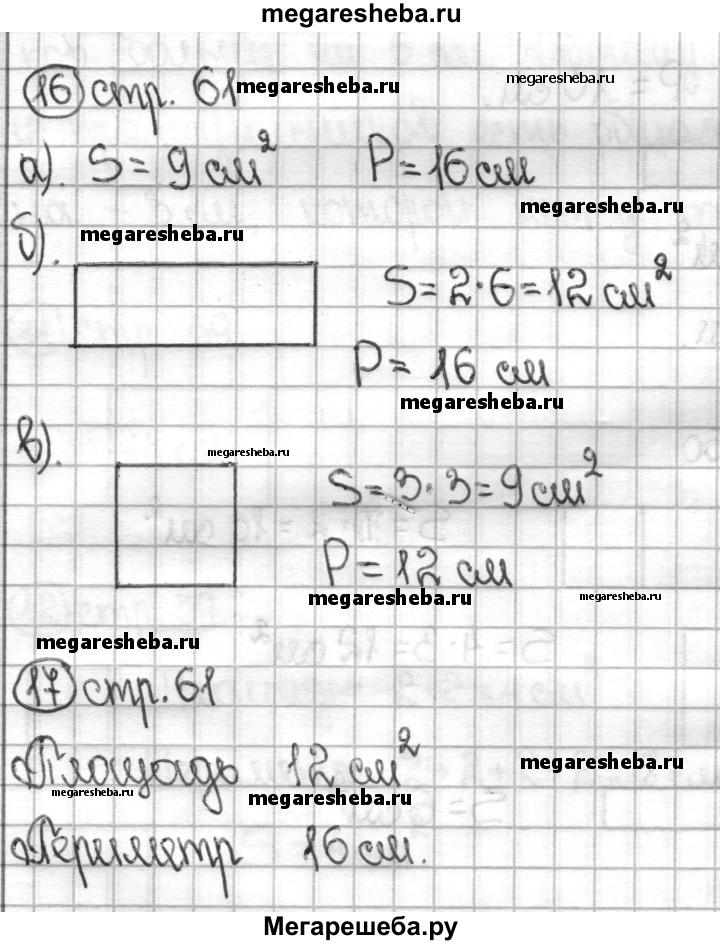 megaresheba.ru
16 стр. 61 megaresheba.ru megaresheba.ru
а). S = 9 см² P = 16 см
megaresheba.ru
б). megaresheba.ru
S = 2·6 = 12 см²
P = 16 см
megaresheba.ru
в). megaresheba.ru
S = 3·3 = 9 см²
P = 12 см
megaresheba.ru megaresheba.ru
megaresheba.ru
17 стр. 61
Площадь 12 см² megaresheba.ru
megaresheba.ru megaresheba.ru
Периметр 16 см.
Мегарешеба.ру